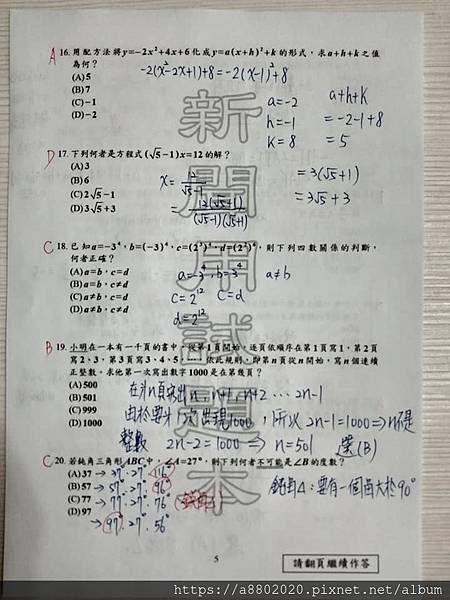 A 16. 用配方法將y=-2x²+4x+6化成y=a(x+h)²+k的形式,求a+h+k之值
為何?
-2(x²-2x+1)+8=-2(x-1)²+8
(A) 5
(B) 7
(C) -1
(D) -2
a=-2
h=-1
k=8
a+h+k
=-2-1+8
=5
D 17. 下列何者是方程式(√5-1)x=12的解?
(A) 3
(B) 6
(C) 2√5-1
(D) 3√5+3
x=12/(√5-1)
=12(√5+1)/(√5-1)(√5+1)
=3(√5+1)
=3√5+3
C 18. 已知a=-3⁴,b=(-3)⁴,c=(2³)⁴,d=(2²)⁶,則下列四數關係的判斷,
何者正確?
(A) a=b,c=d
(B) a=b,c≠d
(C) a≠b,c=d
(D) a≠b,c≠d
a=-3⁴,b=3⁴ a≠b
c=2¹² c=d
d=2¹²
B 19. 小明在一本有一千頁的書中,從第1頁開始,逐頁依順序在第1頁寫1,第2頁
寫2、3,第3頁寫3、4、5,……,依此規則,即第n頁從n開始,寫n個連續
正整數。求他第一次寫出數字1000是在第幾頁?
(A) 500
(B) 501
(C) 999
(D) 1000
在第n頁寫出n, n+1, n+2 … 2n-1
由於要第1次出現1000,所以2n-1=1000⇒n不是
整數 2n-2=1000⇒n=501 選(B)
C 20. 若鈍角三角形ABC中,∠A=27°,則下列何者不可能是∠B的度數?
(A) 37→37°.27°.116°
(B) 57→57°.27°.96°
(C) 77→77°.27°.76°
(D) 97
→97°.27°.56°
鈍角△:要有一個角大於90°
新聞用試題本
5
請翻頁繼續作答
https://a8802020.pixnet.net/album